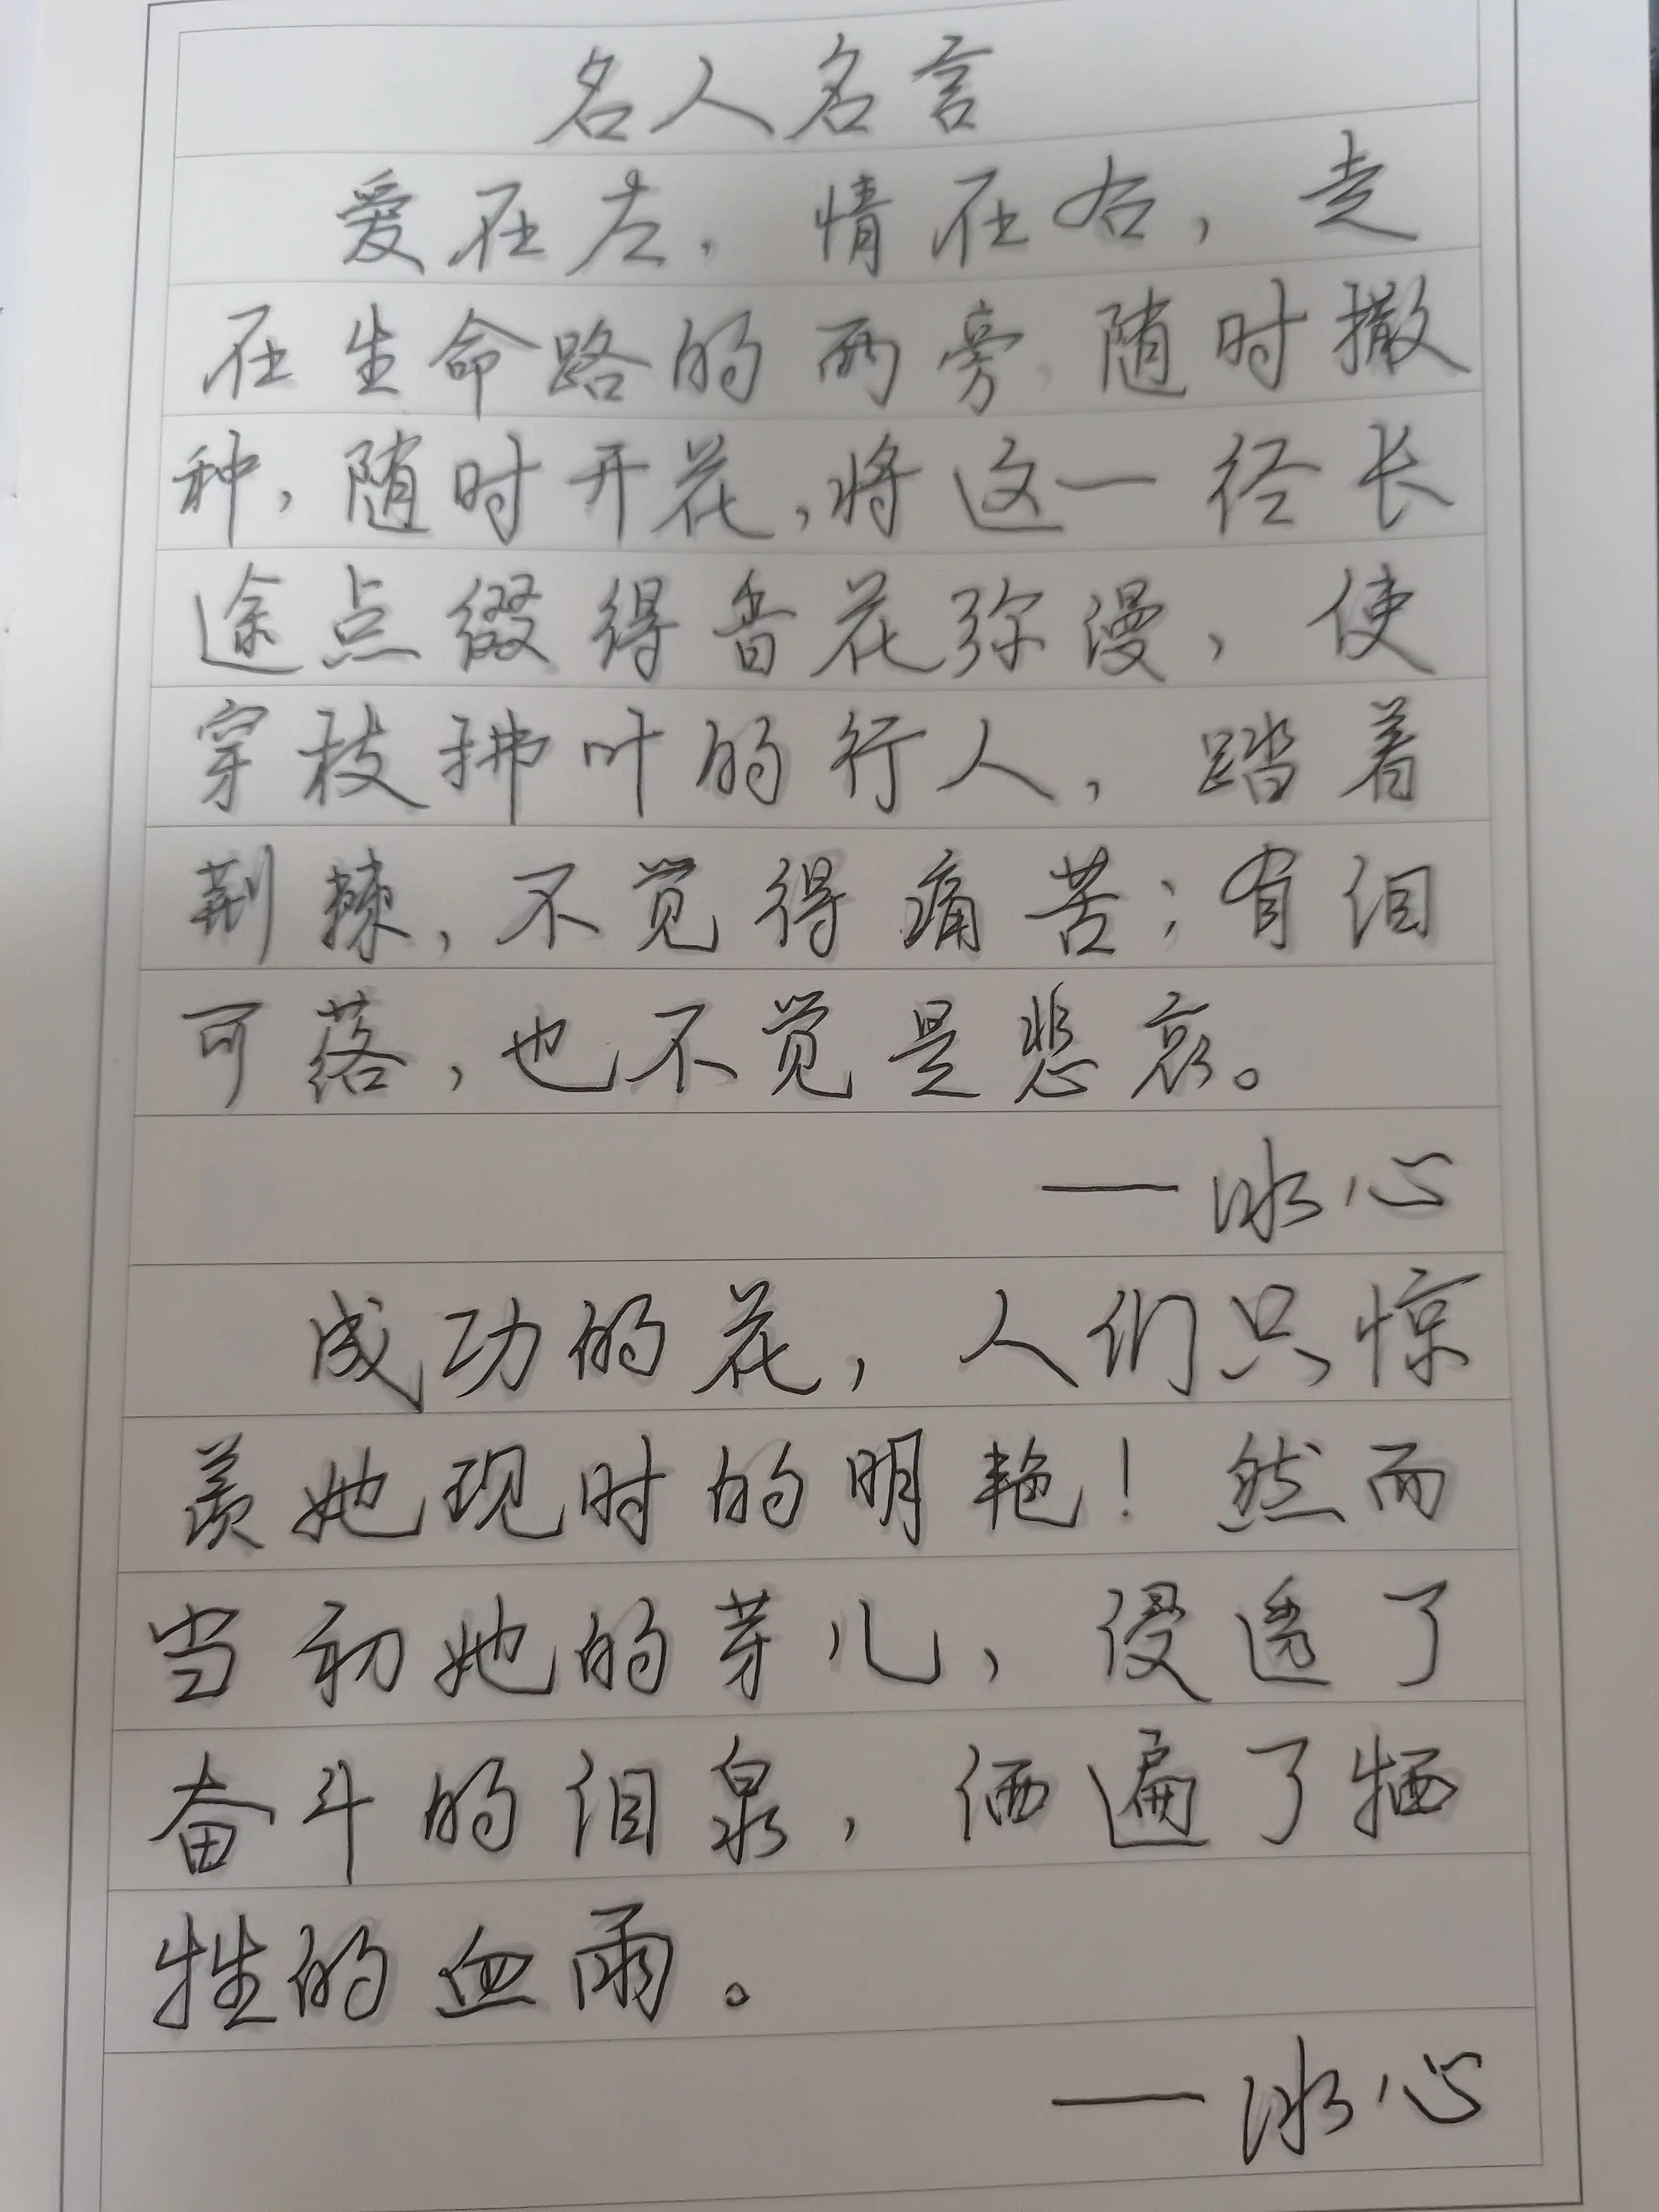 名人名言
爱在左，情在右，走
在生命路的两旁，随时撒
种，随时开花，将这一径长
途点缀得香花弥漫，使
穿枝拂叶的行人，踏着
荆棘，不觉得痛苦；有泪
可落，也不觉是悲哀。
—冰心
成功的花，人们只惊
羡她现时的明艳！然而
当初她的芽儿，浸透了
奋斗的泪泉，洒遍了牺
牲的血雨。
—冰心